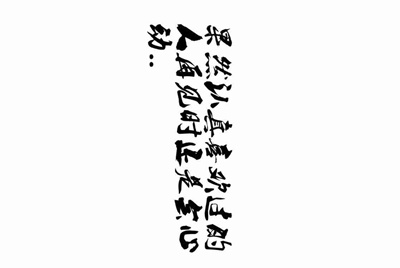 果然认真喜欢过的
人再见时还是会心
动..